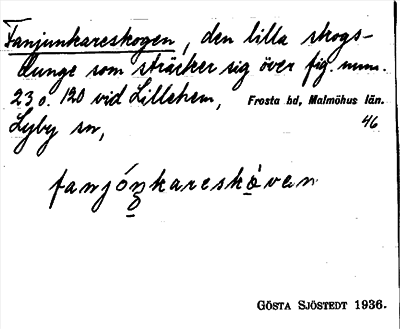 Fanjunkareskogen, den lilla skogs-
dunge som sträcker sig över fig. num.
23 o. 120 vid Lillehem, Frosta hd, Malmöhus län.
Lyby sn, 46
fanjóŋkareskòvan
GÖSTA SJÖSTEDT 1936.